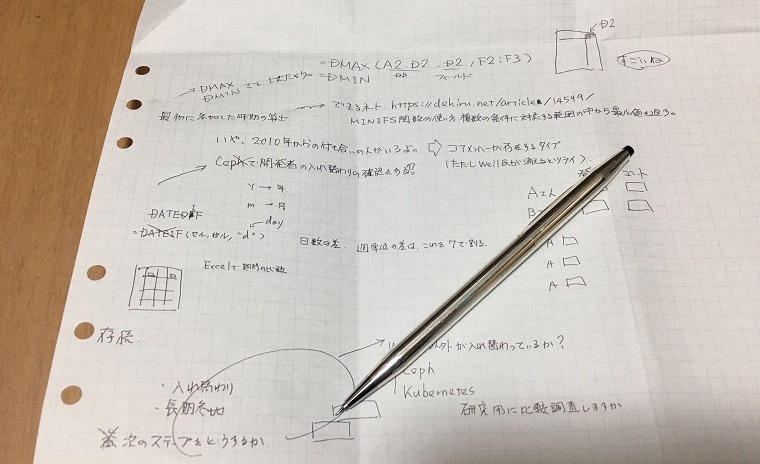 D2
=DMAX(A2:D2, D2, F2:F3)
DB フィールド
すごいね
DMAX
DMIN
=DMIN
最初に参加した時期の算出
できるネット. https://dekiru.net/article/14599/
MINIFS関数の使い方 複数の条件に対応する範囲の中から最小値を返す。
いや、2010年からの付き合いの人がいるよ。
コアメンバーが存在するタイプ
(ただしWell氏が消えるとツライ)
Cephで開発者の入れ替わりの確認
Aさん
Y → 年
m → 月
day
DATEDIF
=DATEIF(セル,セル,"d")
日数の差. 週単位の差は、これを7で割る.
A
A
A
Excelで期間の比較
存続.
が入れ替わっているか?
Ceph
Kubernetes
・入れ替わり
・長期参加
研究用に比較調査しますか
次のステップをどうするか